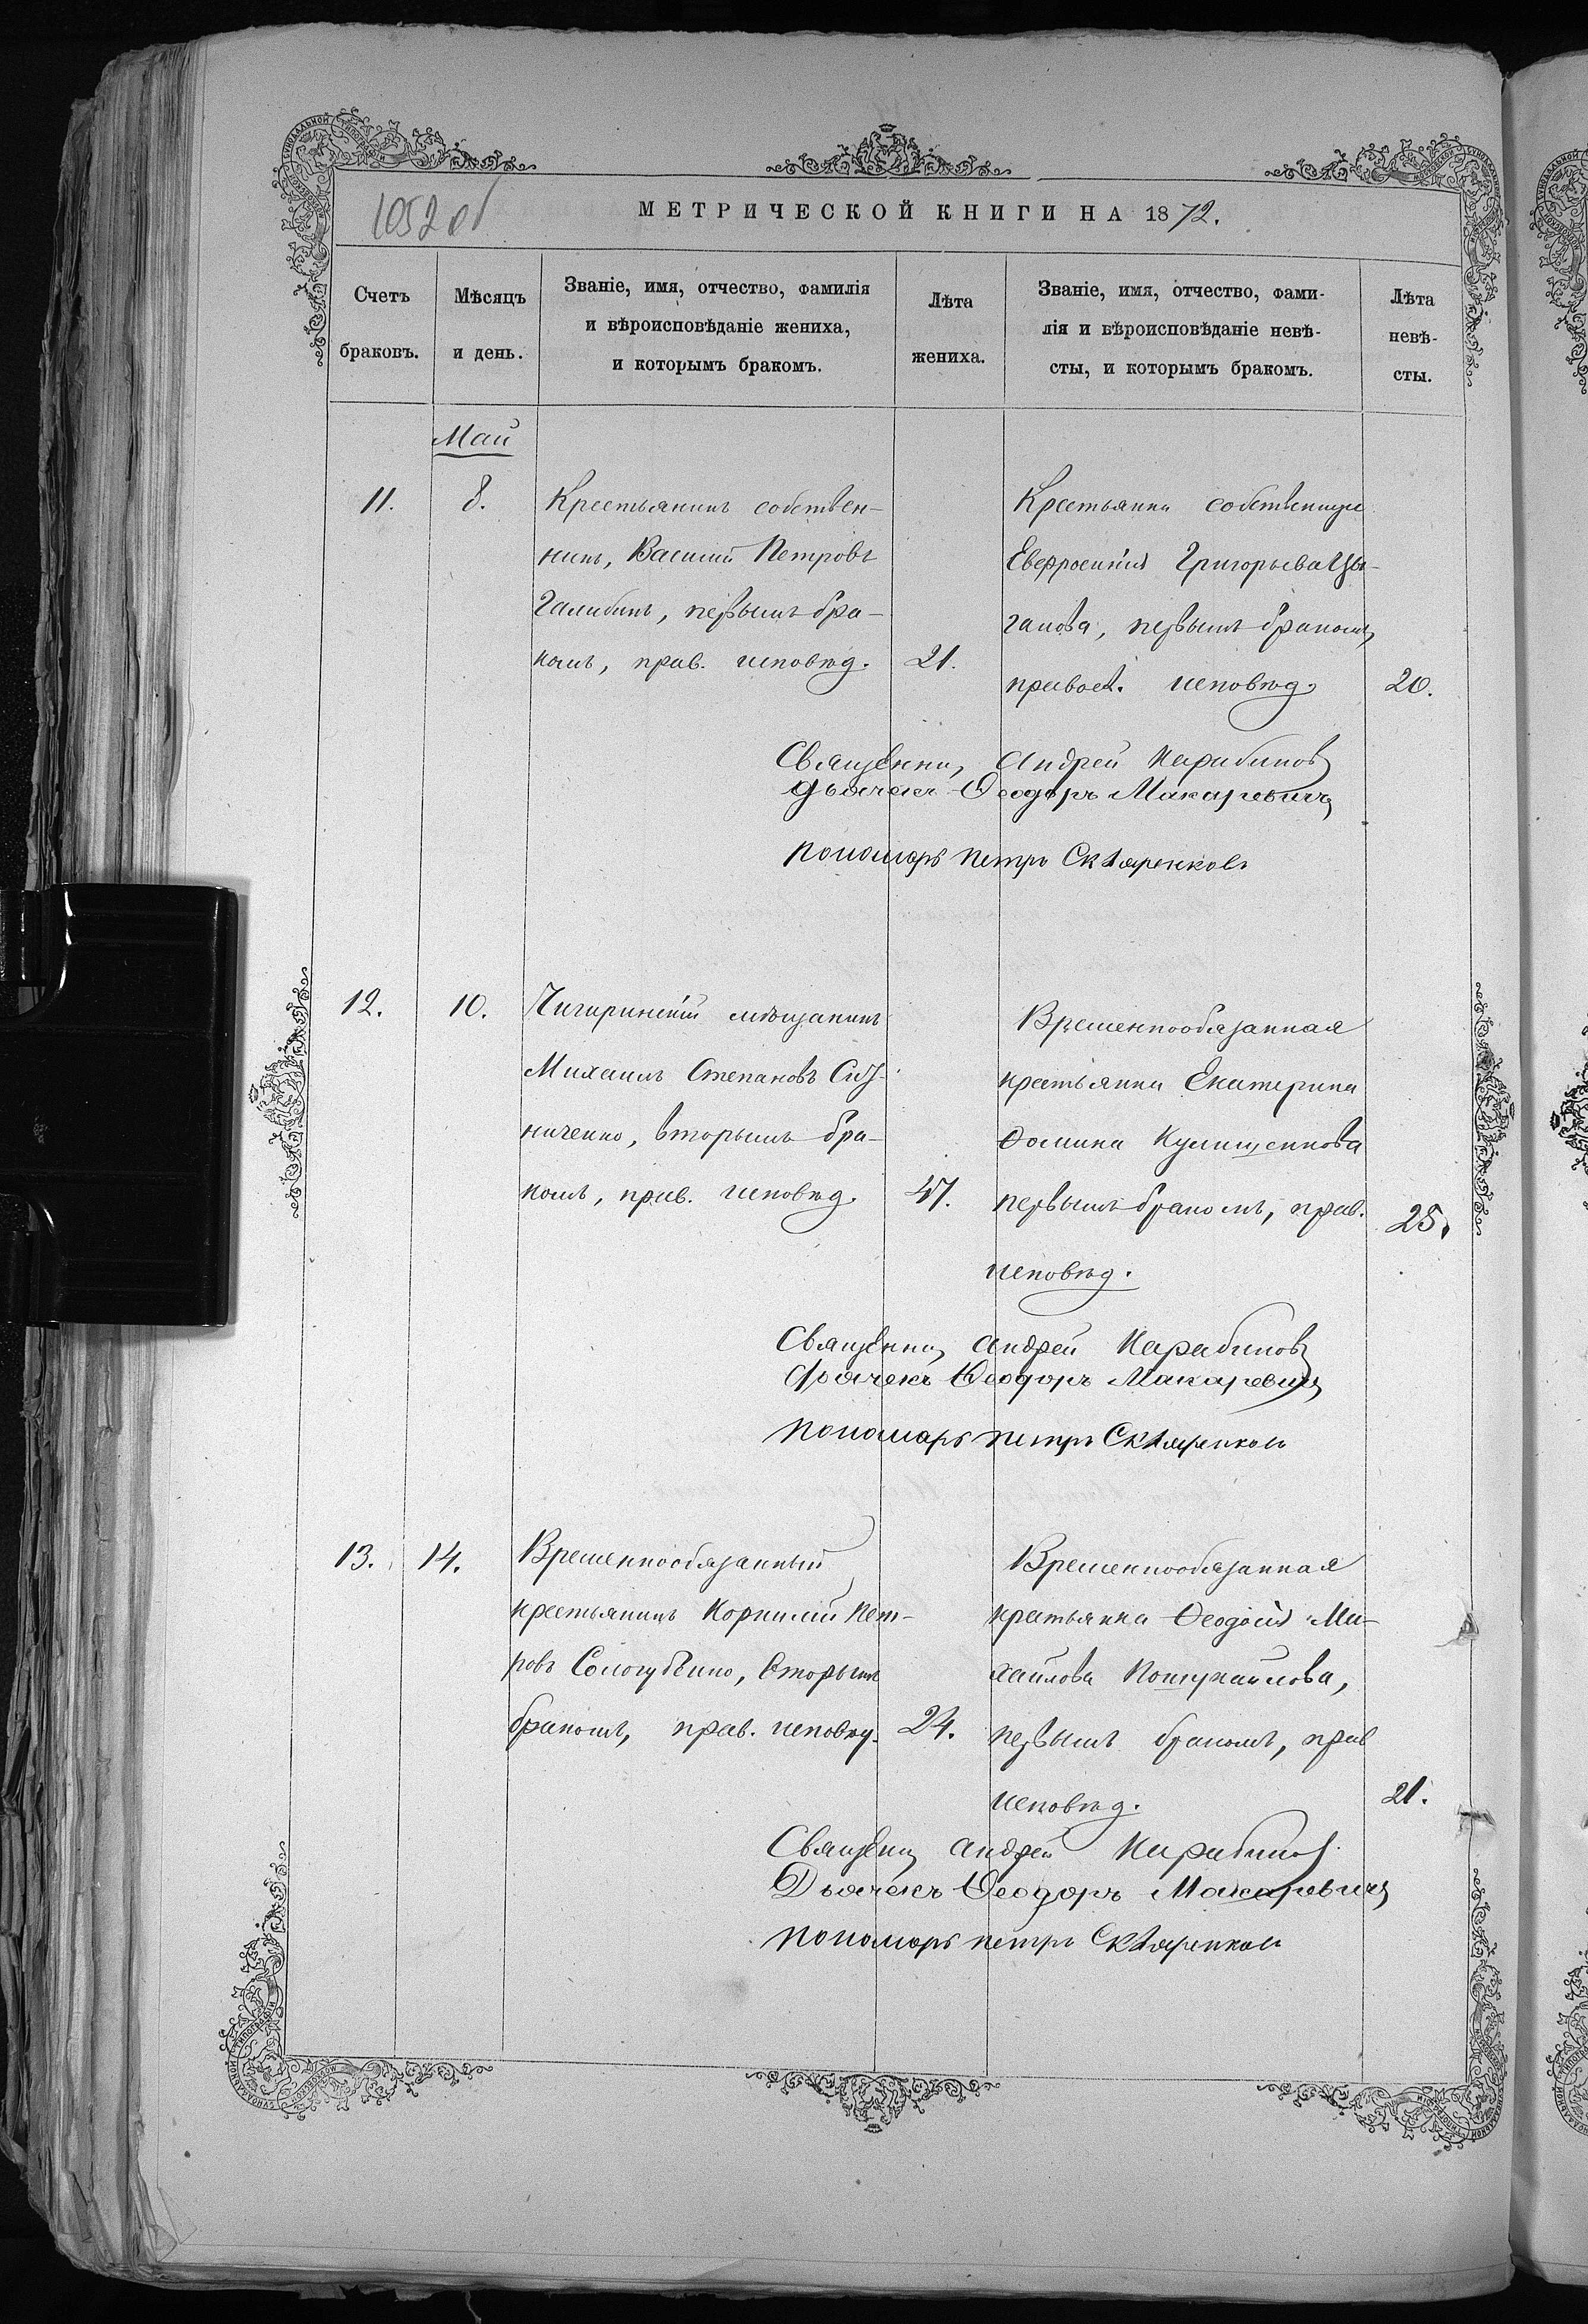 1052 об
МЕТРИЧЕСКОЙ КНИГИ НА 1872.
Счетъ браковъ.
Мѣсяцъ и день.
Званіе, имя, отчество, фамилія
и вѣроисповѣданіе жениха,
и которымъ бракомъ.
Лѣта жениха.
Званіе, имя, отчество, фами-
лія и вѣроисповѣданіе невѣ-
сты, и которымъ бракомъ.
Лѣта невѣ-
сты.
Май
11.
8.
Крестьянинъ собствен-
никъ, Василій Петровъ
Галибинъ, первымъ бра-
комъ, прав. исповѣд.
21.
Крестьянка собственница
Евфросинія Григорьева Цы-
ганова, первымъ бракомъ,
правосл. исповѣд.
20.
Священникъ Андрей Карабиновъ
Дьячекъ Ѳеодоръ Макаревичъ
Пономарь Петръ Скляренковъ
12.
10.
Чигиринскій мѣщанинъ
Михаилъ Степановъ
ниченко, вторымъ бра-
комъ, прав. исповѣд.
47.
Временнообязанная
крестьянка Екатерина
Ѳомина
первымъ бракомъ, прав.
исповѣд.
25.
Священникъ Андрей Карабиновъ
Дьячекъ Ѳеодоръ Макаревичъ
Пономарь Петръ Скляренковъ
13.
14.
Временнообязанный
крестьянинъ Корнилій Пет-
ровъ Сологубенко, вторымъ
бракомъ, прав. исповѣд.
24.
Временнообязанная
крестьянка Ѳеодосія Ми-
хайлова
первымъ бракомъ, прав
исповѣд.
21.
Священникъ Андрей Карабиновъ
Дьячекъ Ѳеодоръ Макаревичъ
Пономарь Петръ Скляренковъ